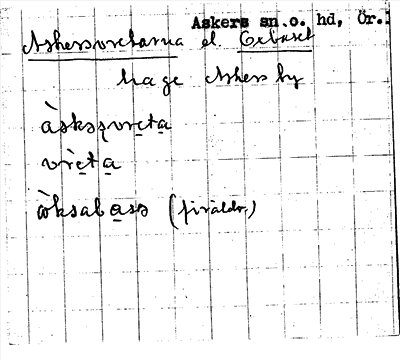 Askers sn.o. hd, Ör.
Askersvretarna el. Oxbaset
hage Askers by
àsksʒvręta
vrę̀ta
òksabass (föråldr.)